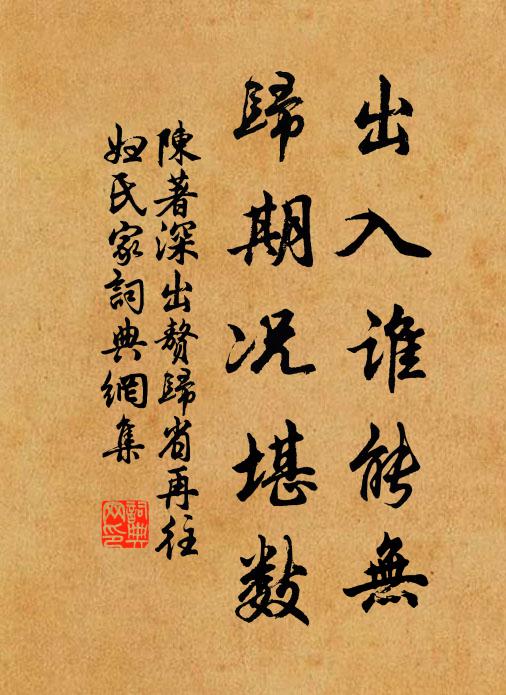 出入谁能無
歸期况堪數
陳著深出贅歸省再往
妲氏家詞典網集
詞典网印